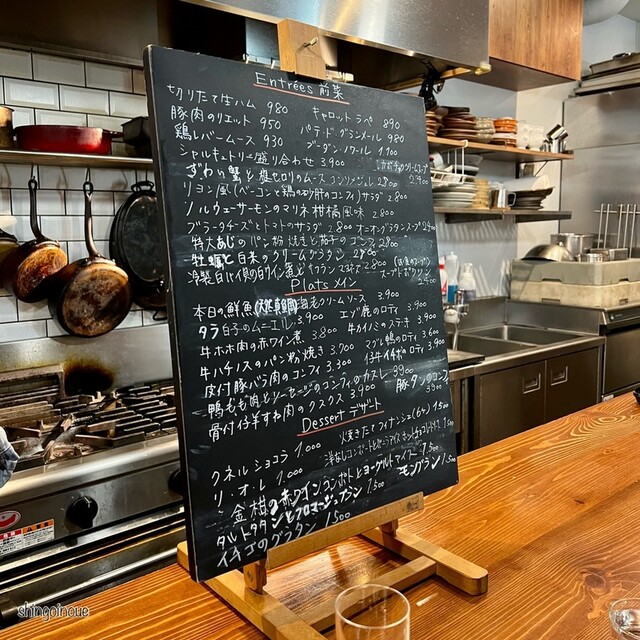 Entrées 前菜
切りたて生ハム 980 キャロットラペ 890
豚肉のリエット 950 パテ・ド・グランメール 980
鶏レバームース 930 ブーダン・ノワール 1.100
シャルキュトリー盛り合わせ 3.900
ずわい蟹と根セロリのムース コンソメジュレ 2.800 2.900
リヨン風(ベーコンと鶏の砂肝のコンフィ)サラダ 2.800
ノルウェーサーモンのマリネ 柑橘風味 2.800
ブラータチーズとトマトのサラダ 2.800 オニオングラタンスープ
特大あじのパン粉焼きと茄子のコンフィ 2.800
牡蠣と白菜のクリームグラタン
冷製白バイ貝の白ワイン煮 2.800
Plats メイン
本日の鮮魚(天然真鯛)海老クリームソース 3.900
タラ白子のムニエル 3.900 エゾ鹿のロティ 3.900
牛ホホ肉の赤ワイン煮 3.800 牛カイノミのステーキ 3.900
牛ハチノスのパン粉焼き 3.900 マグレ鴨のロティ 3.600
皮付豚バラ肉のコンフィ 3.300 イチボのロティ 3.900
鴨もも肉とソーセージのコンフィのカスレ 3900
骨付仔羊すね肉のクスクス 3.900 豚タンのコンフィ
Dessert デザート
焼きたてフィナンシェ(6ヶ) 1.500
クネルショコラ 1.000
リ・オ・レ 1.000
金柑の赤ワインコンポートとヨーグルトアイス 1.500
タルトタタンとフロマージュブラン 1.500 モンブラン 1.500
イチゴのグラタン 1.500
shingoinoue